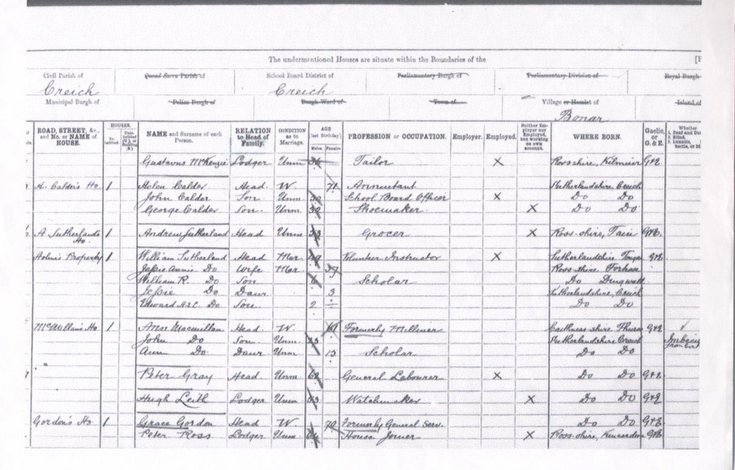 The undermentioned Houses are situate within the Boundaries of the
Civil Parish of Quoad Sacra Parish of School Board District of Parliamentary Burgh of Parliamentary Division of Royal Burgh
Creich Creich
Municipal Burgh of Police Burgh of Burgh Ward of Town of Village or Hamlet of Island of
Bonar
ROAD, STREET, &c., and No. or NAME of HOUSE. HOUSES. NAME and Surname of each Person. RELATION to Head of Family. CONDITION as to Marriage. AGE [last Birthday]. PROFESSION or OCCUPATION. Employer. Employed. Neither Employer nor Employed, but working on own account. WHERE BORN. Gaelic, or G. & E. Whether
Males. Females.
Gustavus McKenzie Lodger Unm Tailor X Ross shire, G&E
A. Calder's Ho. 1 Helen Calder Head W. Annuitant Sutherlandshire, Creich
John Calder Son Unm School Board Officer X Do Do
George Calder Son Unm Shoemaker X Do Do
A Sutherlands Ho. 1 Andrew Sutherland Head Unm Grocer X Ross-shire, Tain G&E
Property 1 William Sutherland Head Mar Volunteer Instructor X Sutherlandshire G&E
Jessie Annie Do Wife Mar 39 Ross-shire
William R. Do Son Scholar Do Dingwall
Jessie Do Daur 3 Sutherlandshire, Creich
Edward Do Son 2 Do Do
McMillan's Ho. 1 Ann Macmillan Head W. Formerly Milliner Caithness-shire G&E
John Do Son Unm Sutherlandshire Creich
Ann Do Daur Unm 13 Scholar Do Do
Peter Gray Head Unm General Labourer X Do Do G&E
Hugh Leith Lodger Unm Watchmaker X Do Do G&E
Gordon's Ho. 1 Grace Gordon Head W. Formerly General Serv. Do Do G&E
Peter Ross Lodger Unm House Joiner X Ross-shire, G&E